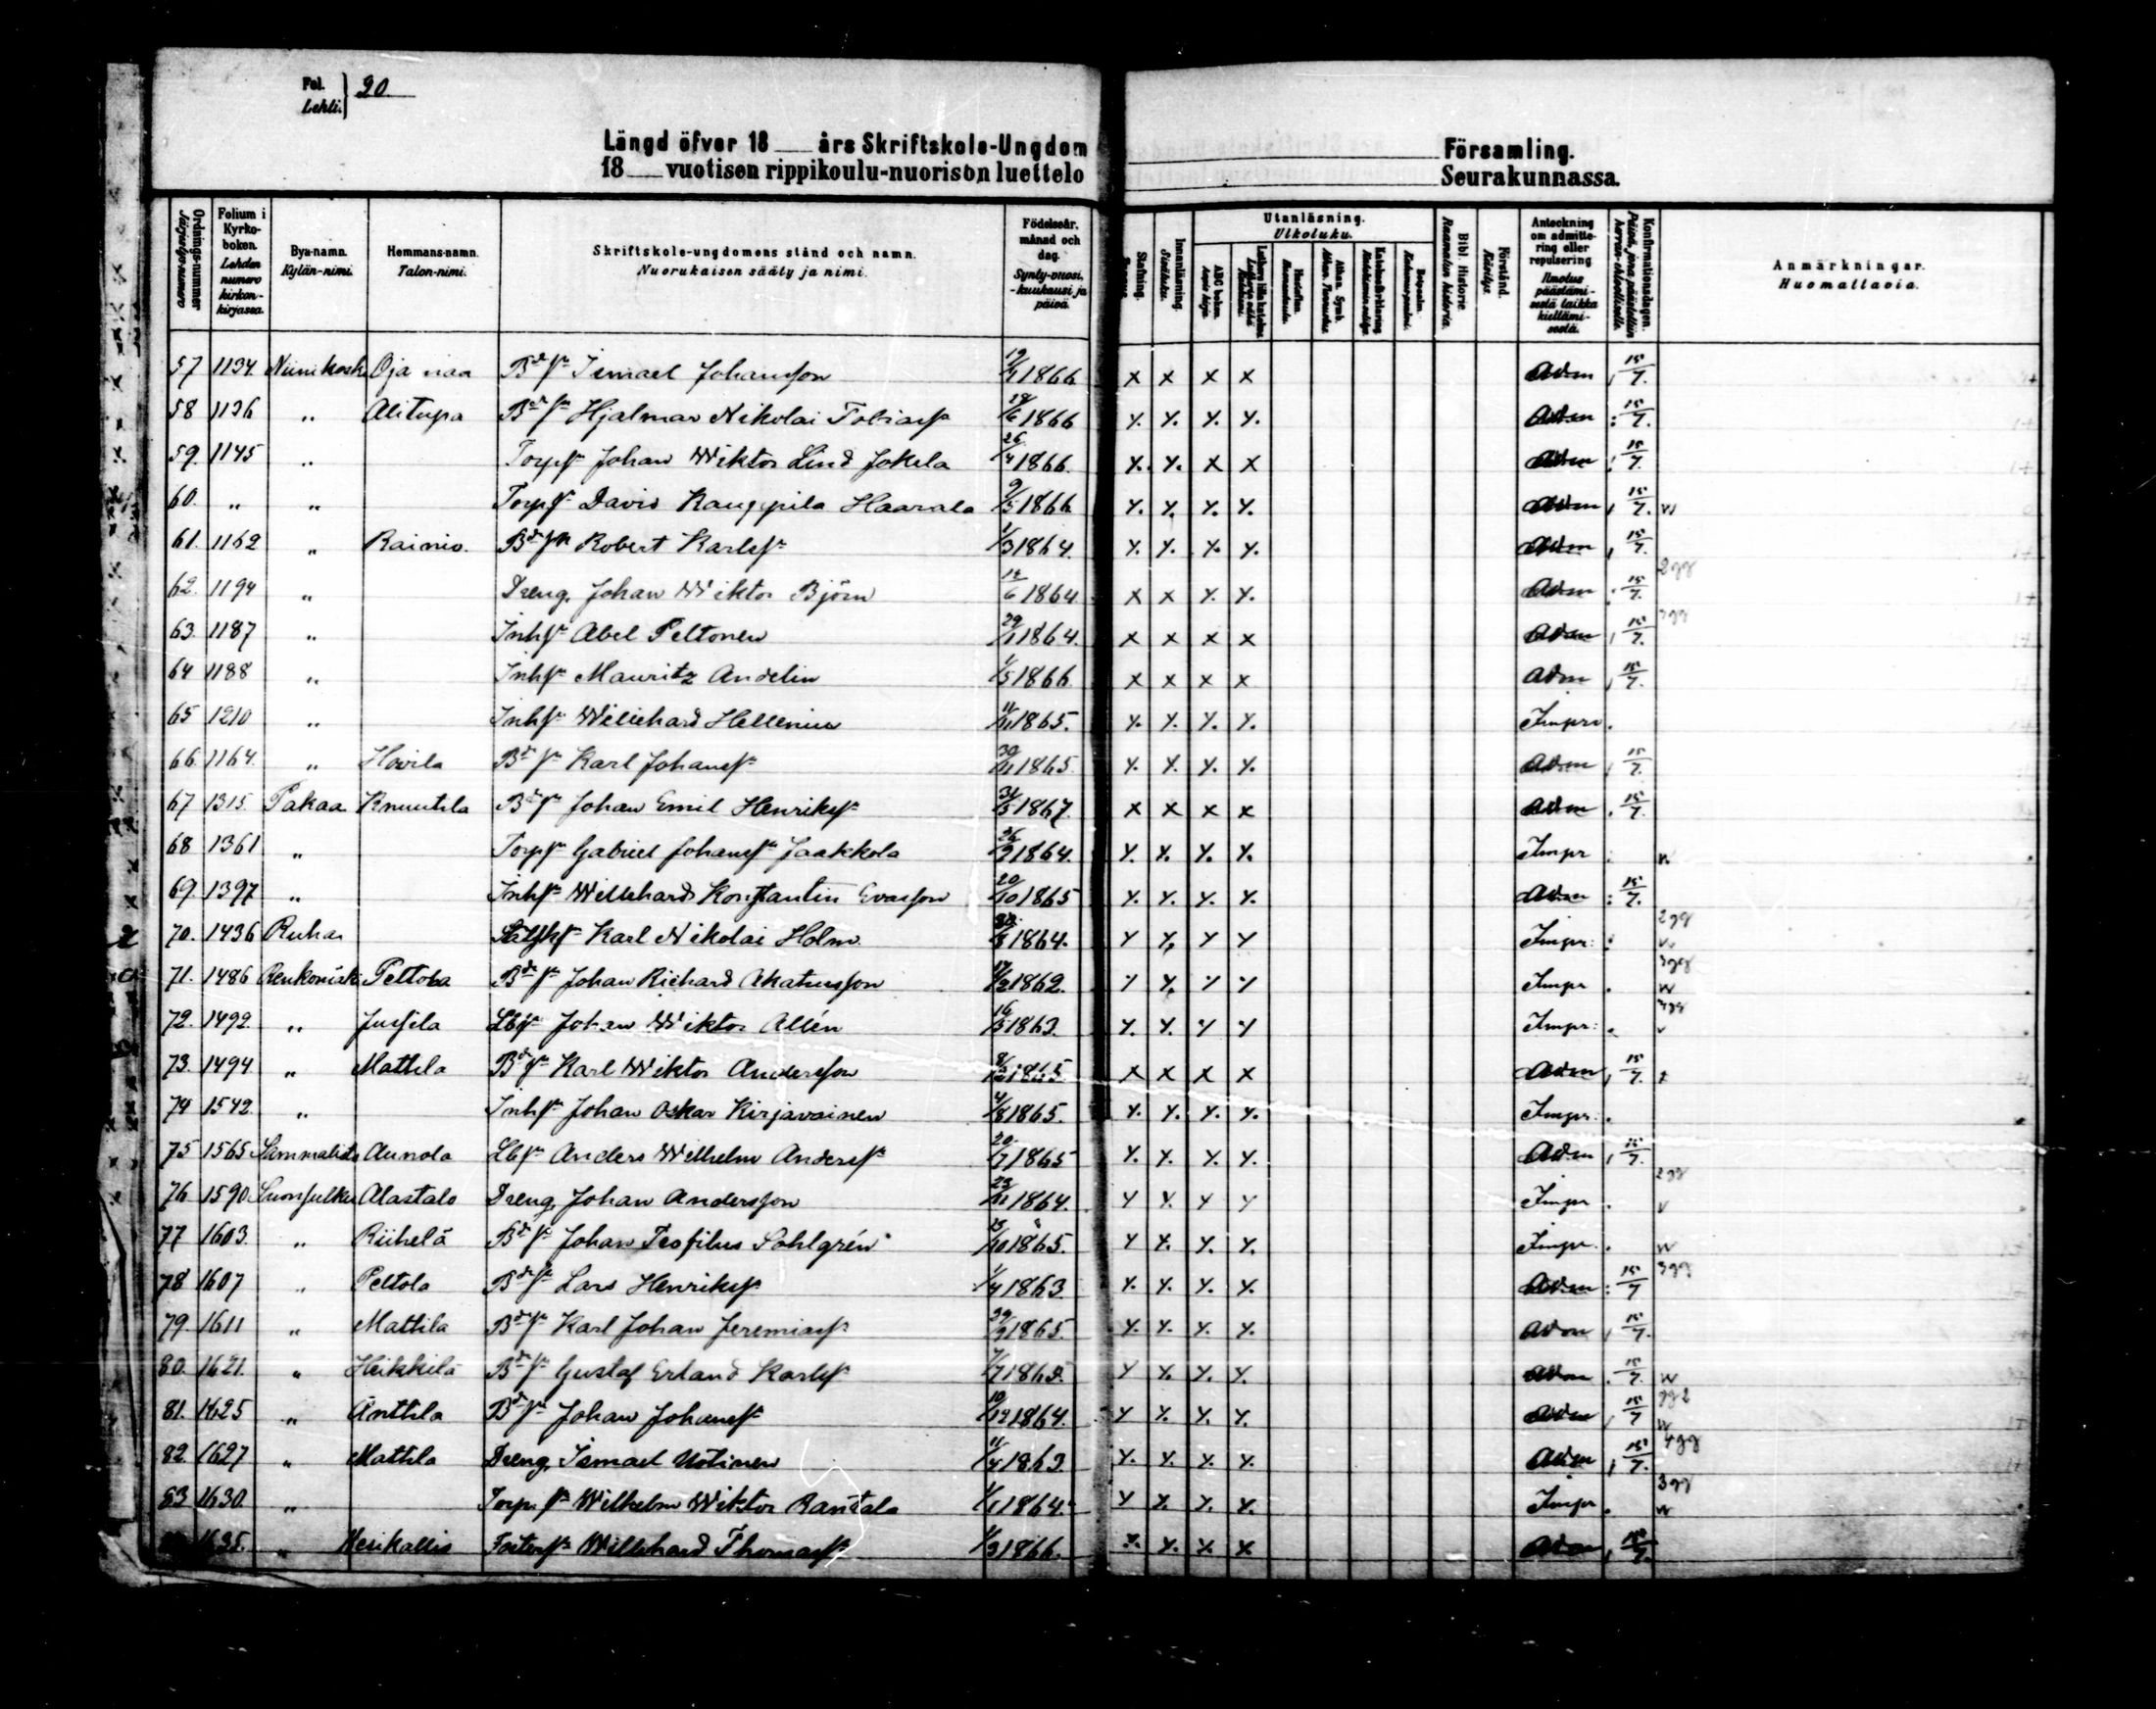 Fol. Lehti. } 20
Längd öfver 18 ___ års Skriftskole-Ungdom ___ Församling.
18 ___ vuotisen rippikoulu-nuorison luettelo ___ Seurakunnassa.
Ordnings-nummer Järjestys-numero | Folium i Kyrko-boken. Lehden numero kirkon-kirjassa. | Bya-namn. Kylän-nimi. | Hemmans-namn. Talon-nimi. | Skriftskole-ungdomens stånd och namn. Nuorukaisen sääty ja nimi. | Födelseår, månad och dag. Synty-vuosi, -kuukausi ja päivä. | Stafning. | Innanläsning. Sisäluku. | Utanläsning. Ulkoluku. | ABC boken. | Hustaflan. Huoneentaulu. | Athan. Symb. | Bibl. Historie. Raamatun historia. | Förstånd. Käsitys. | Anteckning om admitte-ring eller repulsering Ilmotus päästämi-sestä taikka kieltämi-sestä. | Konfirmationsdagen. | Anmärkningar. Huomattavia.
57 1134 Niinikoski Ojansaa Bdes Ismael Johansson 19/1 1866 x x x x Adm, 15/7.
58 1136 " Alitupa Bdes Hjalmar Nikolai Tobiass 28/6 1866 x. x. x. x. Adm : 15/7.
59. 1145 " Torps Johan Wiktor Lind Jokela 26/4 1866. x. x. x x Adm : 15/7.
60. " " Torps David Kauppila Haarala 9/5 1866 x. x. x. x. Adm, 15/7. w
61. 1162 " Rainio. Bdes Robert Karlss 1/3 1864. x. x. x. x. Adm, 15/7.
62. 1194 " Dreng. Johan Wiktor Björn 14/6 1864 x x x. x. Adm. 15/7. 2gg
63. 1187 " Inhs Abel Peltonen 29/11 1864. x x x x Adm, 15/7.
64 1188 " Inhs Mauritz Andelin 1/5 1866 x x x x Adm, 15/7.
65 1210 " Inhs Willehard Hellenius 11/11 1865. x. x. x. x. Impr.
66. 1164. " Hovila Bdes Karl Johanss 30/11 1865. x. x. x. x. Adm, 15/7.
67 1315. Pakaa Knuutila Bdes Johan Emil Henrikss 31/5 1867. x x x x Adm. 15/7.
68 1361 " Torps Gabriel Johanss Jaakkola 26/2 1864. x. x. x. x. Impr. w
69. 1397 " Inhs Willehard Konstantin Evasson 20/10 1865 x. x. x. x. Adm : 15/7.
70. 1436 Ruha Karl Nikolai Holm. 1864. x x. x x Impr: 2gg
71. 1486 Renkomäki Peltola Bdes Johan Richard Akatusson 17/2 1862. x x. x x Impr. 3gg w
72. 1492. " Jussila Lbs Johan Wiktor Allén 16/5 1863. x. x. x x Impr:. v
73. 1494 " Mattila Bdes Karl Wiktor Andersson 8/12 1865 x x x x Adm, 15/7.
74 1542. " Inhs Johan Oskar Kirjavainen 4/8 1865. x. x. x. x. Impr:.
75 1565 Aunola Lbs Anders Wilhelm Anderss 20/7 1865 x. x. x. x. Adm, 15/7.
76 1590. Alastalo Dreng Johan Andersson 23/11 1864. x x. x x Impr. 2gg v
77 1603. " Riihelä Bdes Johan Teofilus Sahlgrén 25/10 1865. x x. x. x. Impr. w
78 1607 " Peltola Bdes Lars Henrikss 1/4 1863. x. x. x. x. Adm : 15/7 3gg
79. 1611 " Mattila Bdes Karl Johan Jeremiass 29/9 1865. x. x. x. x. Adm, 15/7.
80. 1621. " Heikkilä Bdes Gustaf Erland Karlss 7/7 1865. x x. x. x. Adm. 15/7. w
81. 1625 " Anttila Bdes Johan Johanss 10/12 1864. x x. x. x. Adm, 15/7 gg2 w
82. 1627 " Mattila Dreng Ismael Uotinen 11/4 1863 x. x. x. x. Adm, 15/7. 4gg
83 1630. " Torps Wilhelm Wiktor Rantala 1/1 1864. x x. x. x. Impr. 3gg w
1635. " Kesikallio Fosters Willehard Thomass 1/3 1866. x. x. x. x Adm, 15/7.